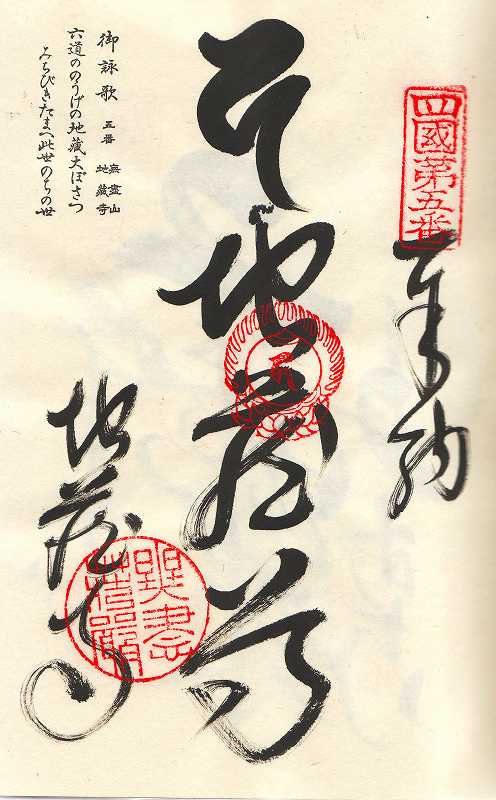 四國第五番
奉納
地蔵尊
地蔵寺
御詠歌 五番 無盡山 地蔵寺
六道ののうげの地蔵大ぼさつ
みちびきたまへ此世のちの世